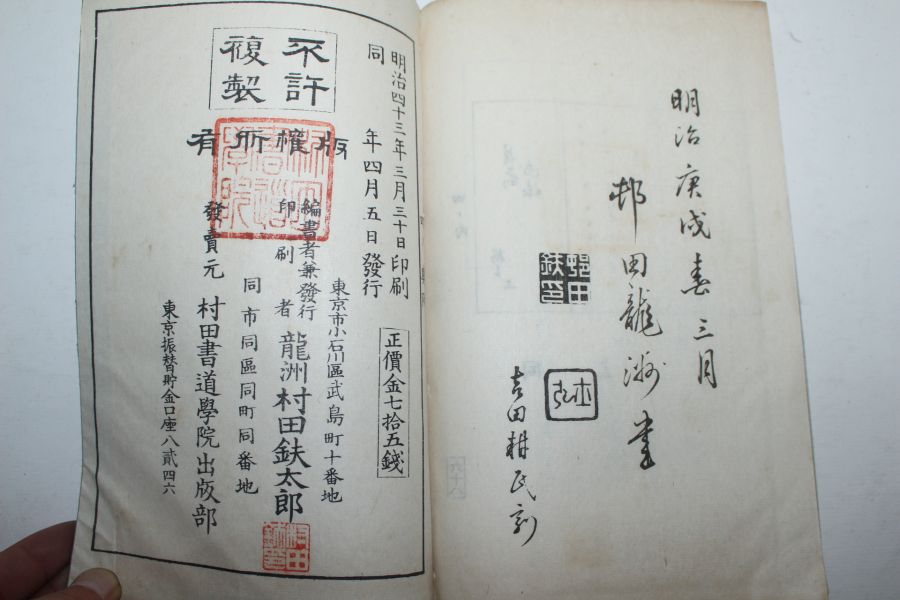 明治庚戌春三月
邨田龍洲書
邨田鉄印
吉田耕民刻
明治四十三年三月三十日印刷
同年四月五日發行
不許複製
版權所有
正價金七拾五錢
東京市小石川區武島町十番地
編書者兼發行
印刷者
龍洲村田鉄太郎
同市同區同町同番地
發賣元
村田書道學院出版部
東京振替貯金口座八貳四六